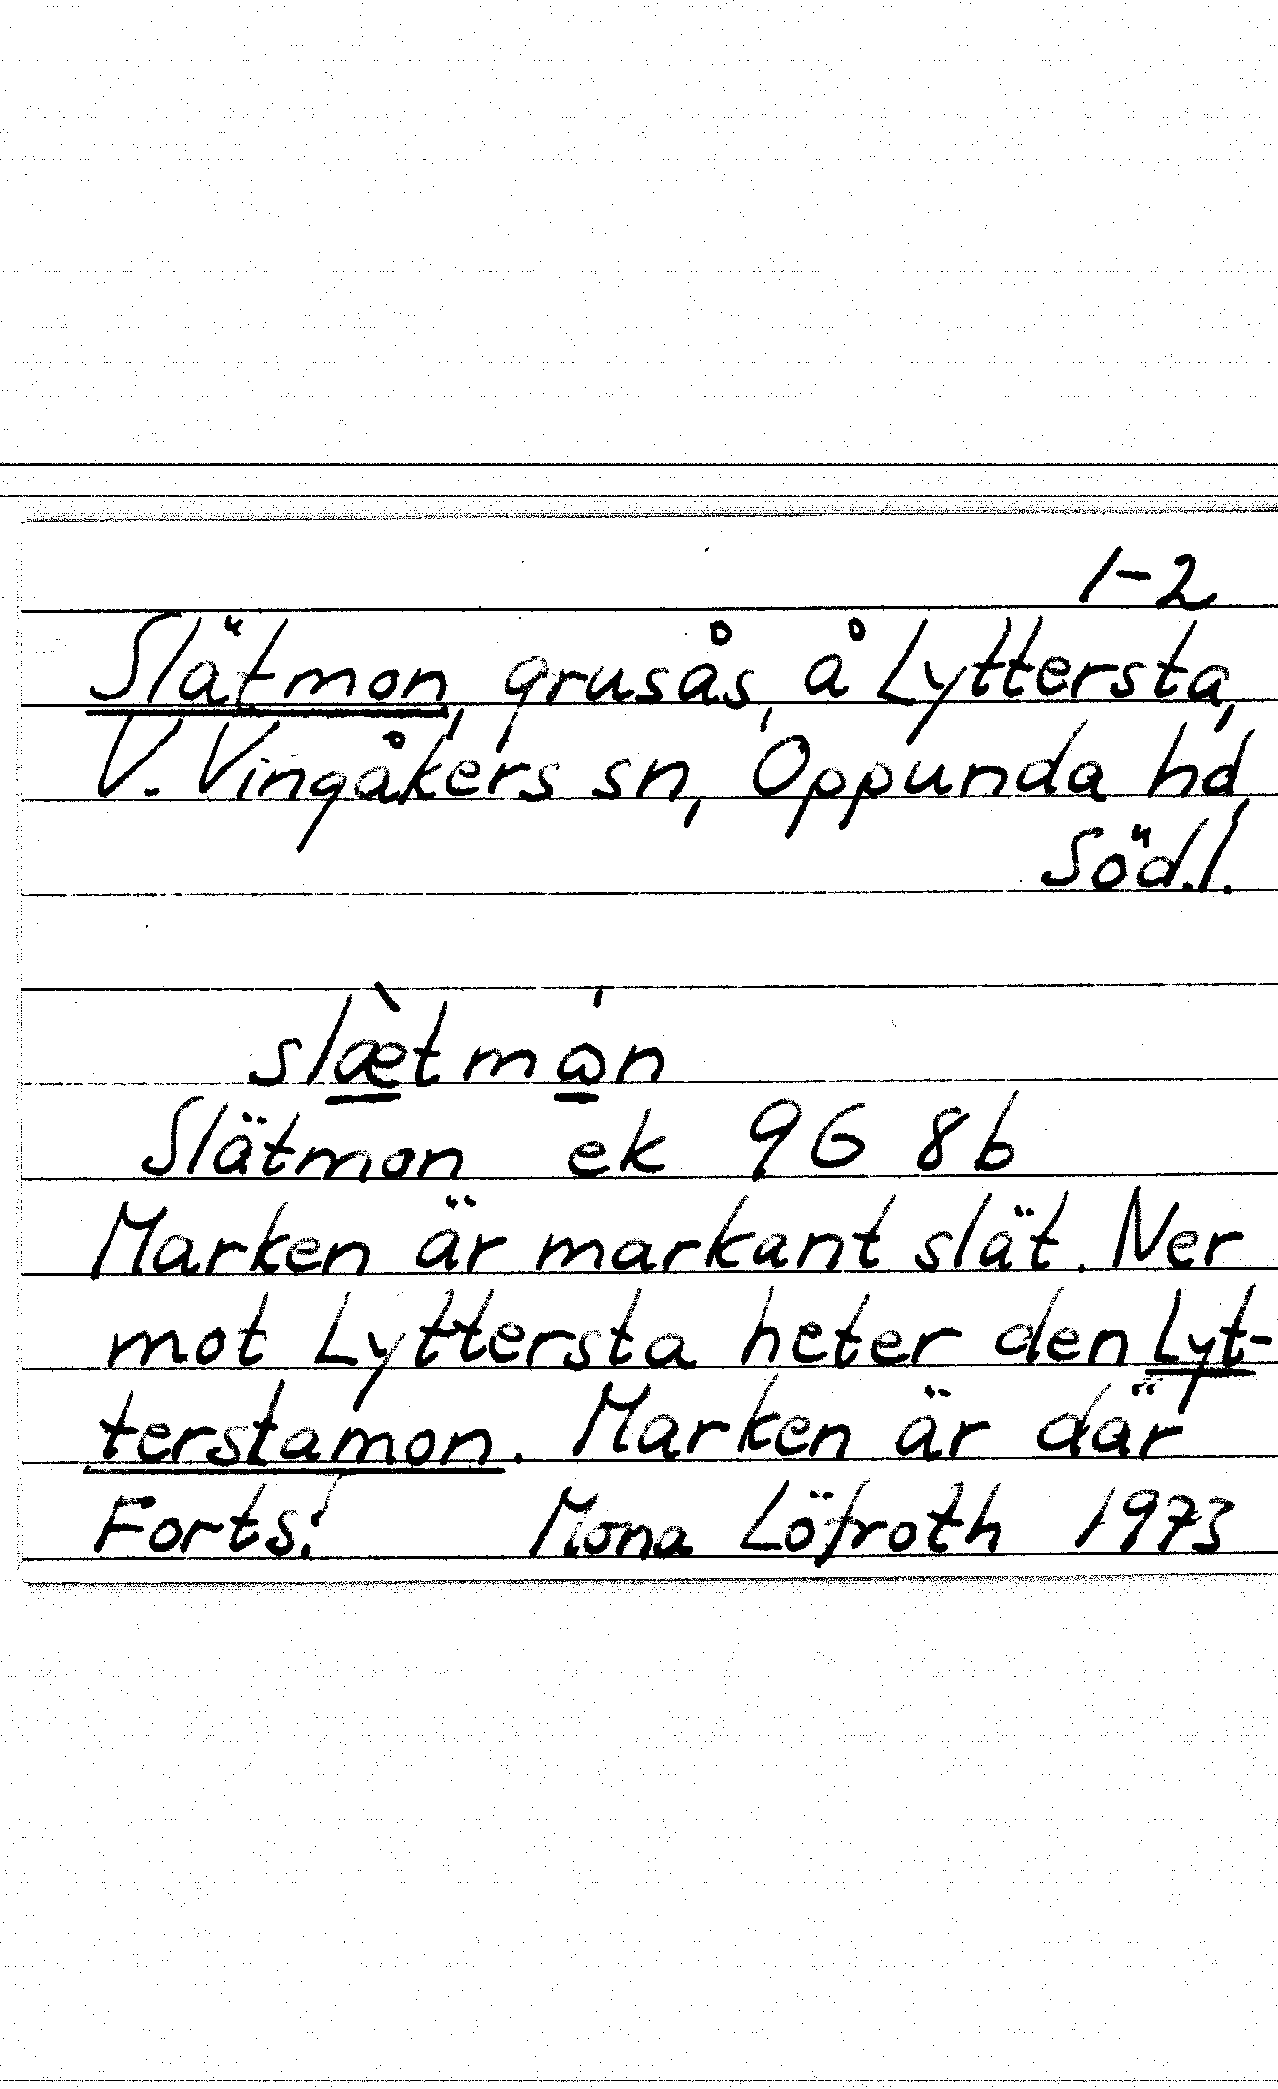 1-2
Slätmon, grusås, å Lyttersta,
V. Vingåkers sn, Oppunda hd,
Söd.l.
slæ̀tmω̍n
Slätmon ek 9G 8b
Marken är markant slät. Ner
mot Lyttersta heter den Lyt-
terstamon. Marken är där
Forts! Mona Löfroth 1973